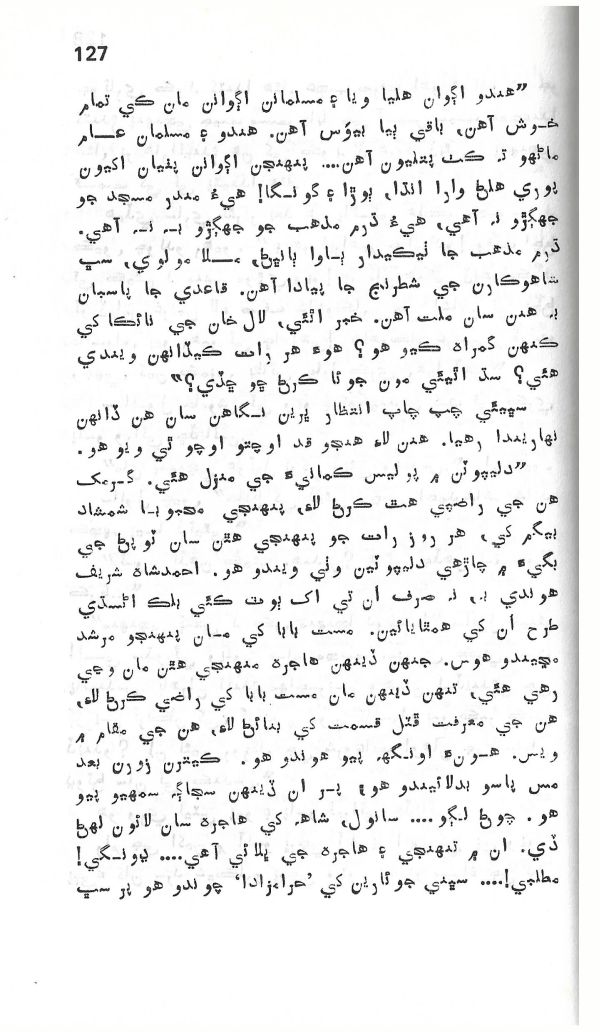 127
”هندو اڳواڻ هليا ويا ۽ مسلمانن اڳواڻن مان ڪي تمام
خوش آهن، باقي ٻيا بيوَس آهن. هندو ۽ مسلمان عام
ماڻهو تہ ڪٺ پتليون آهن.... پنهنجن اڳواڻن پٺيان اکيون
پوري هلڻ وارا انڌا، ٻوڙا ۽ گونگا! هيءُ مندر مسجد جو
جهڳڙو نہ آهي، هيءُ ڌرم مذهب جو جهڳڙو بہ نہ آهي.
ڌرم مذهب جا ٺيڪيدار باوا ٻانڀڻ، ملا مولوي، سڀ
شاهوڪارن جي شطرنج جا پيادا آهن. قاعدي جا پاسبان
بہ هنن سان ملت آهن. خبر اٿئي، لال خان جي نائڪا کي
ڪنهن گمراهه ڪيو هو؟ هوءَ هر رات ڪيڏانهن ويندي
هئي؟ سڌ اٿيئي مون جوئا ڪرڻ ڇو ڇڏي؟“
سڀيئي چپ چاپ انتظار ڀرين نگاهن سان هن ڏانهن
نهاريندا رهيا. هنن لاءِ هنجو قد اوچتو اوچو ٿي ويو هو.
”دليپوٽن ۾ پوليس ڪمائيءَ جي منزل هئي.
هن جي راضپي هٿ ڪرڻ لاءِ، پنهنجي محبوبا شمشاد
بيگم کي، هر روز رات جو پنهنجي هٿن سان ٽوپڻ جي
بگيءَ ۾ چاڙهي دليپوٽين وٺي ويندو هو. احمدشاهه شريف
هوندي بہ، نہ صرف اُن تي اک ٻوٽ ڪئي بلڪ اڻسڌي
طرح اُن کي همٿايائين. مست بابا کي مان پنهنجو مرشد
مڃيندو هوس. جنهن ڏينهن هاجره منهنجي هٿن مان وڃي
رهي هئي، تنهن ڏينهن مان مست بابا کي راضي ڪرڻ لاءِ،
هن جي معرفت ڦٽل قسمت کي بنائڻ لاءِ، هن جي مقام ۾
ويس. هونءَ اونگهہ پيو هوندو هو. ڪيترن زورن بعد
مس پاسو بدلائيندو هو، پر ان ڏينهن سڄاڳ سمهيو پيو
هو. چوڻ لڳو.... سانول، شاهہ کي هاجره سان لائون لهڻ
ڏي. ان ۾ تنهنجي ۽ هاجره جي ڀلائي آهي.... ڍونگي!
مطلبي!.... سڀني جوئارين کي ’حرامزادا‘ چوندو هو پر سڀ